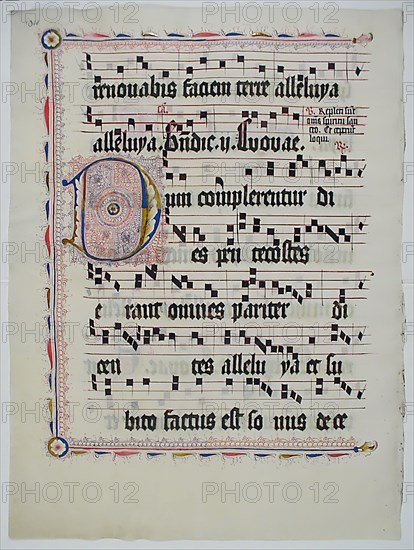 renouabis faciem terre alleluya
alleluya. Evovae.
V. Repleti sūt
om̄s spiritu san
cto. Et ceperūt
loqui.
Dum complerentur di
es pen tecostes
e rant omnes pariter di
cen tes allelu ya et su
bito factus est so nus de ce
PHOTO 12